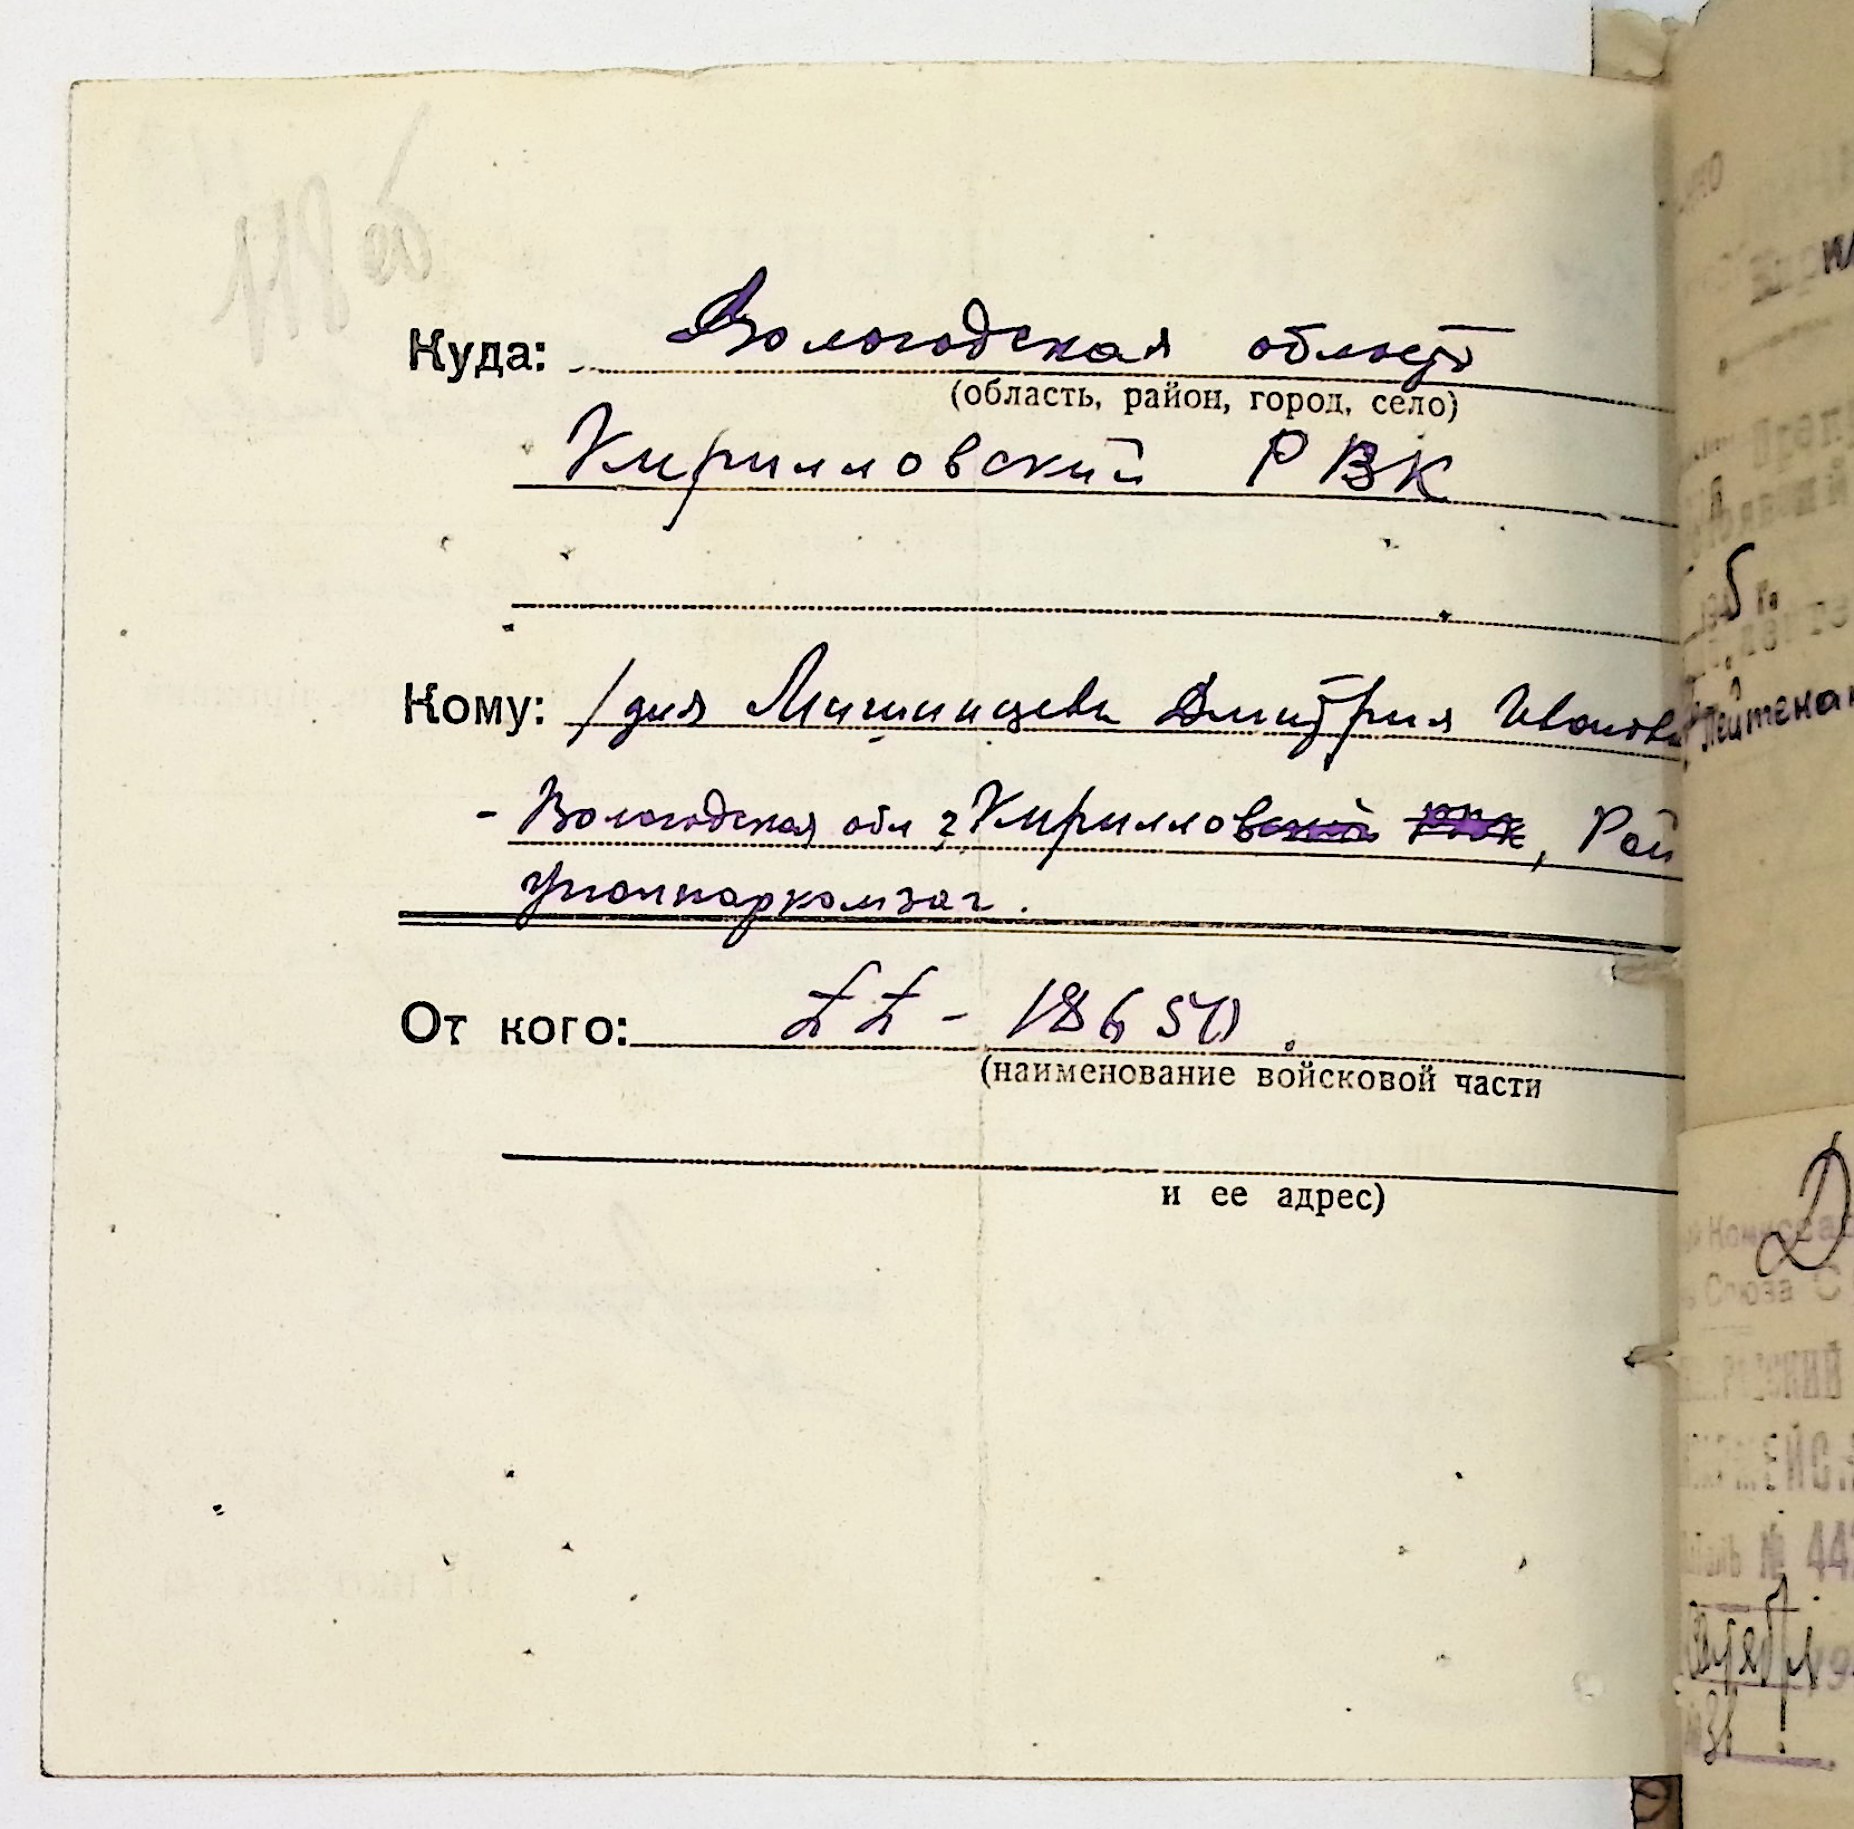 118 об
Куда: Вологодская область
(область, район, город, село)
Кирилловский РВК
Кому: /для Мишинцева Дмитрия Иванов
- Вологодская обл г. Кириллов, Рай
уполнаркомзаг.
От кого: ПП - 18650.
(наименование войсковой части
и ее адрес)
5 г.
Лейтенан
Д
Комиссар
Союза С
№ 442